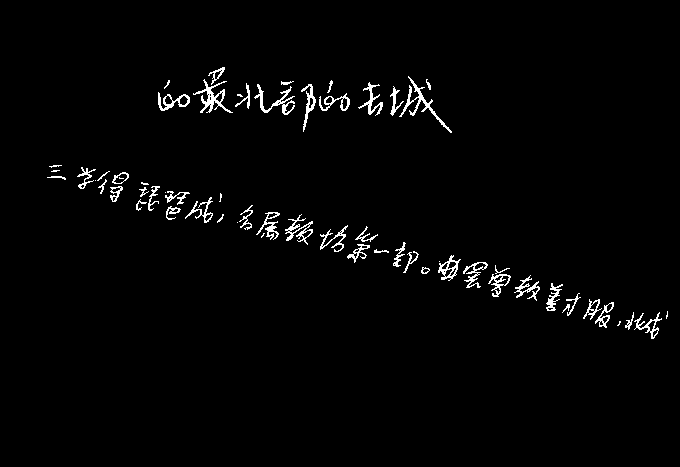 的最北部的古城
三学得琵琶成，名属教坊第一部。曲罢曾教善才服，妆成